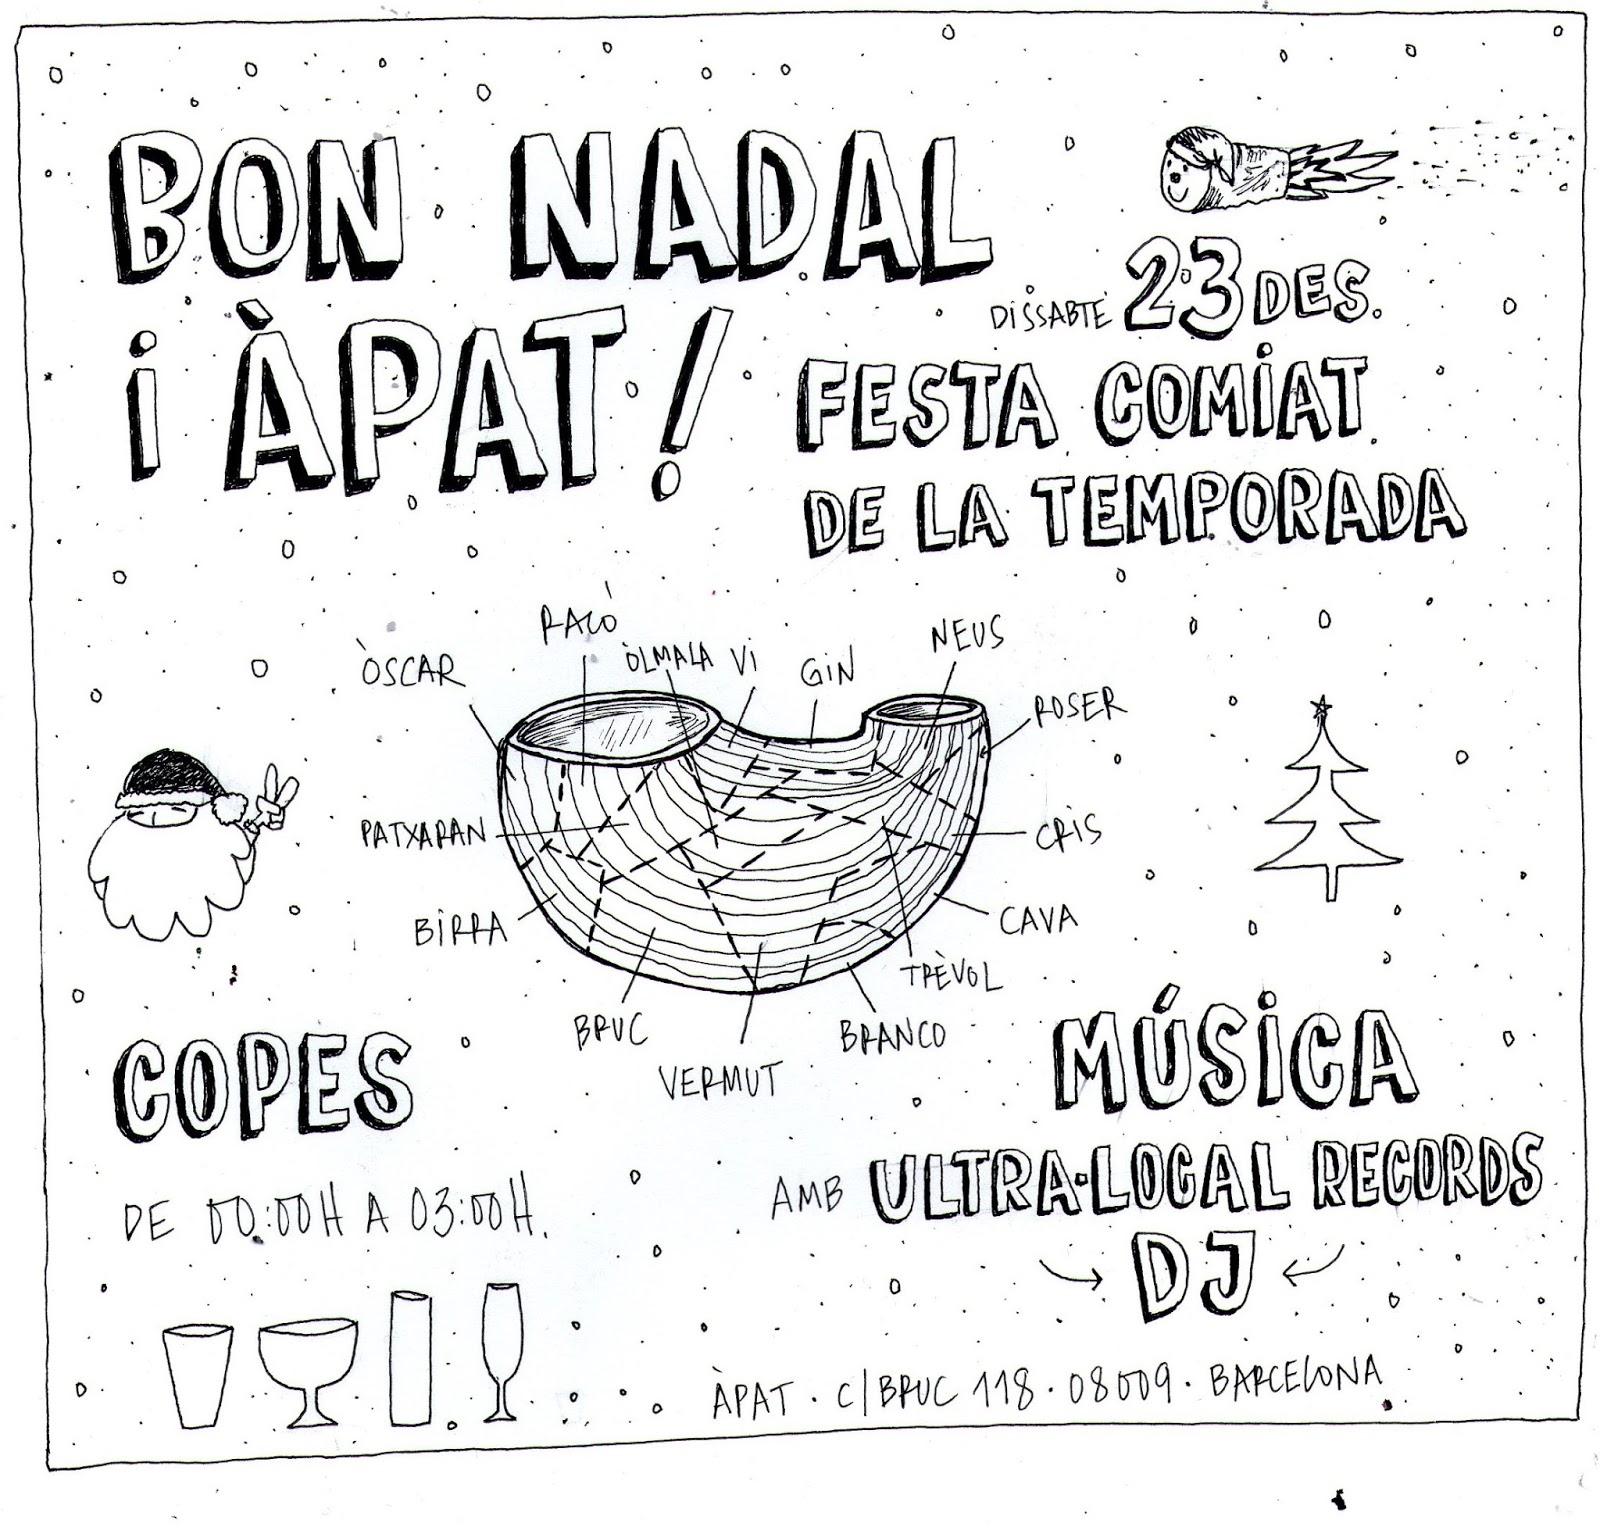 BON NADAL
i ÀPAT!
DiSSABTE 23 DES.
FESTA COMiAT
DE LA TEMPORADA
RACÓ
NEUS
ÒSCAR
ÒLMALA
Vi
GiN
ROSER
PATXARAN
CRiS
BiRRA
CAVA
TRÈVOL
BRUC
BRANCO
VERMUT
COPES
DE 00:00H A 03:00H.
MÚSiCA
AMB ULTRA·LOCAL RECORDS
DJ
ÀPAT · C/BRUC 118 · 08009 · BARCELONA